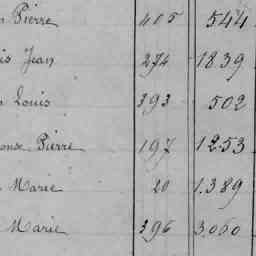 n Pierre 405 544
is Jean 274 1839
n Louis 393 502
onse Pierre 197 1253
Marie 20 1.389
Marie 396 3.060